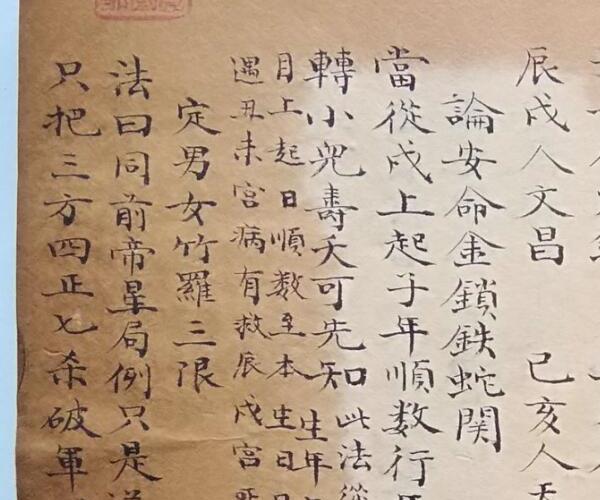 辰戌人文昌　　巳亥人天
論安命金鎖鉄蛇関
當從戌上起子年順数行
轉小兒壽夭可先知　此法從
生年
月上起日順数至本生日
遇丑未宮病有救辰戌宮
定男女竹羅三限
法曰同前帝星局例只是
只把三方四正七杀破軍